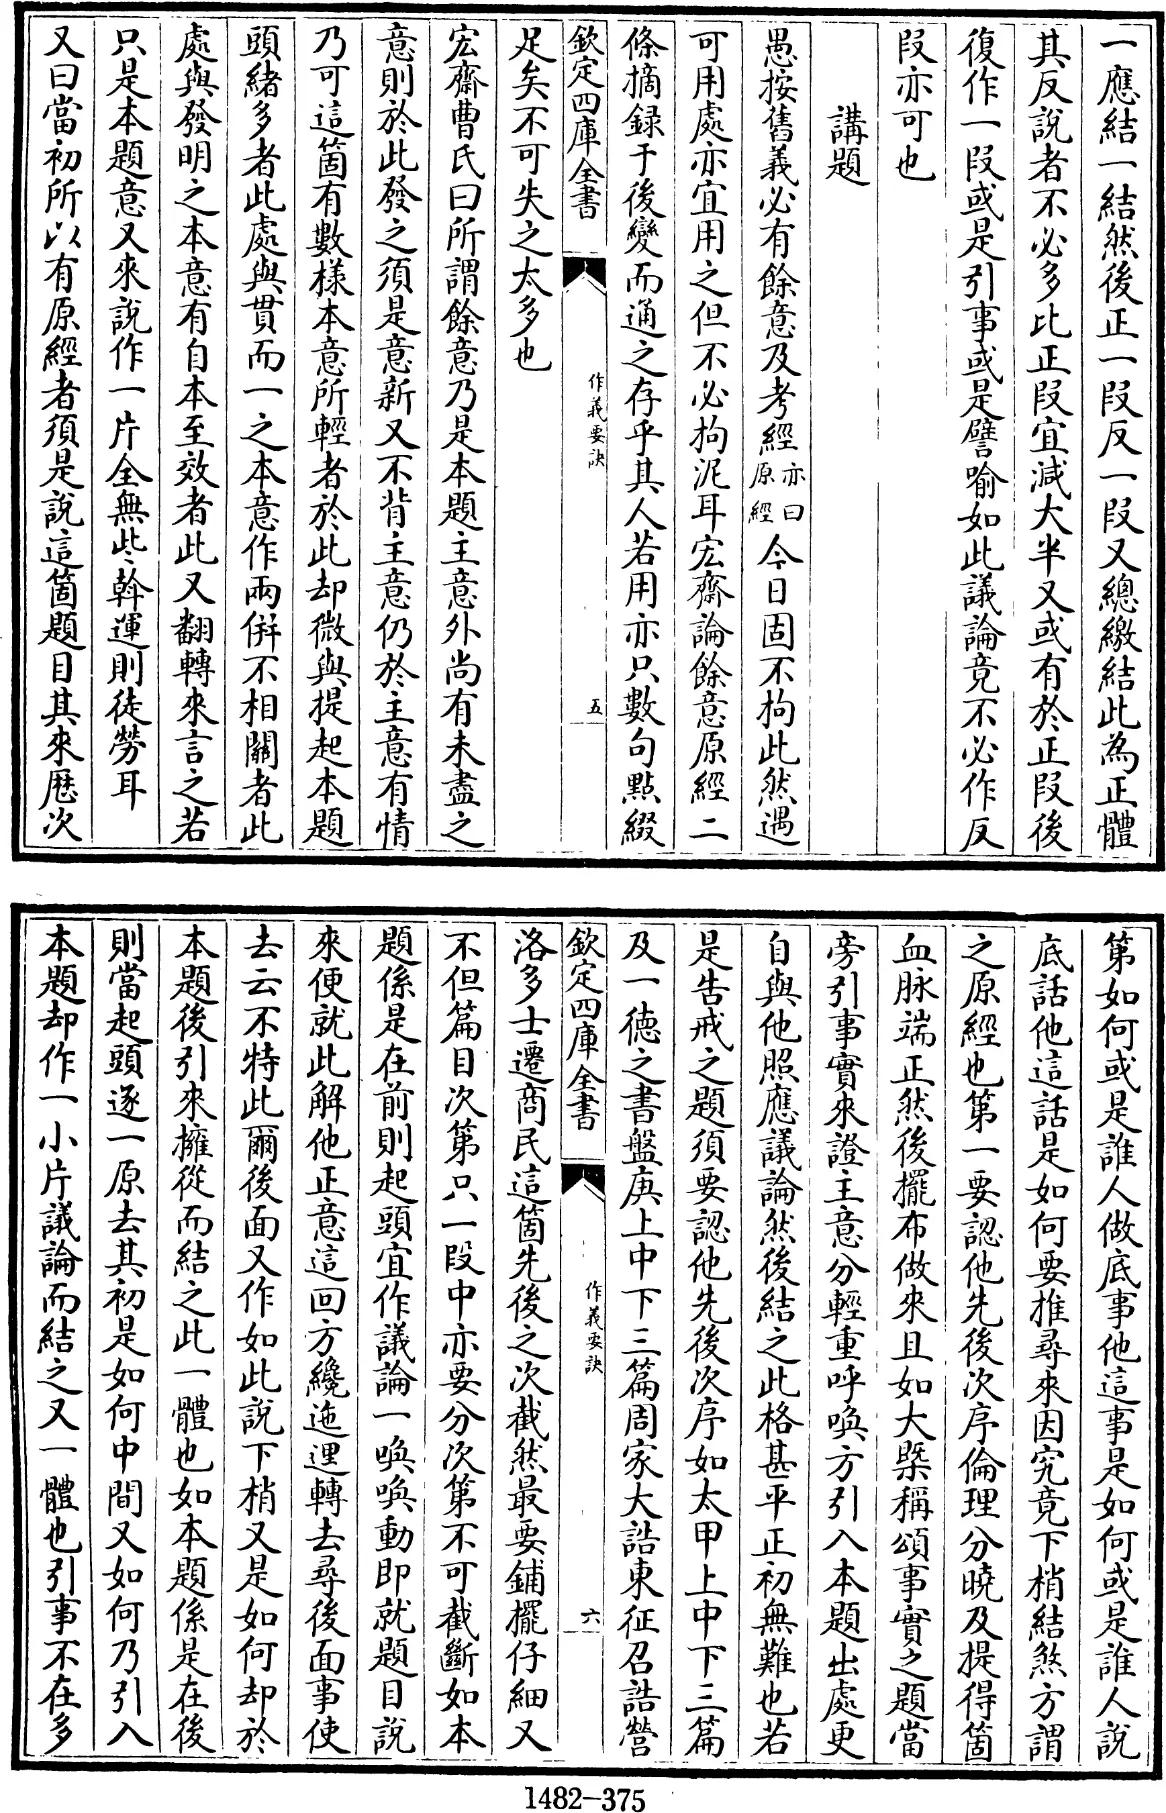 一應結一結然後正一段反一段又總繳結此為正體
其反説者不必多比正段宜減大半又或有於正段後
復作一段或是引事或是譬喻如此議論竟不必作反
段亦可也
講題
愚按舊義必有餘意及考經亦曰原經今日固不拘此然遇
可用處亦宜用之但不必拘泥耳宏齋論餘意原經二
條摘録于後變而通之存乎其人若用亦只數句點綴
欽定四庫全書
作義要訣
五
足矣不可失之太多也
宏齋曹氏曰所謂餘意乃是本題主意外尚有未盡之
意則於此發之須是意新又不背主意仍於主意有情
乃可這箇有數樣本意所輕者於此却微與提起本題
頭緒多者此處與貫而一之本意作兩併不相關者此
處與發明之本意有自本至效者此又翻轉來言之若
只是本題意又來説作一片全無些斡運則徒勞耳
又曰當初所以有原經者須是説這箇題目其來歷次
第如何或是誰人做底事他這事是如何或是誰人說
底話他這話是如何要推尋來因究竟下梢結煞方謂
之原經也第一要認他先後次序倫理分曉及提得箇
血脉端正然後擺布做來且如大槩稱頌事實之題當
旁引事實來證主意分輕重呼喚方引入本題出處更
自與他照應議論然後結之此格甚平正初無難也若
是告戒之題須要認他先後次序如太甲上中下三篇
及一德之書盤庚上中下三篇周家大誥東征召誥營
欽定四庫全書
作義要訣
六
洛多士遷商民這箇先後之次截然最要鋪擺仔細又
不但篇目次第只一段中亦要分次第不可截斷如本
題係是在前則起頭宜作議論一喚喚動即就題目說
來便就此解他正意這回方纔迤邐轉去尋後面事使
去云不特此爾後面又作如此說下梢又是如何却於
本題後引來擁從而結之此一體也如本題係是在後
則當起頭逐一原去其初是如何中間又如何乃引入
本題却作一小片議論而結之又一體也引事不在多
1482-375